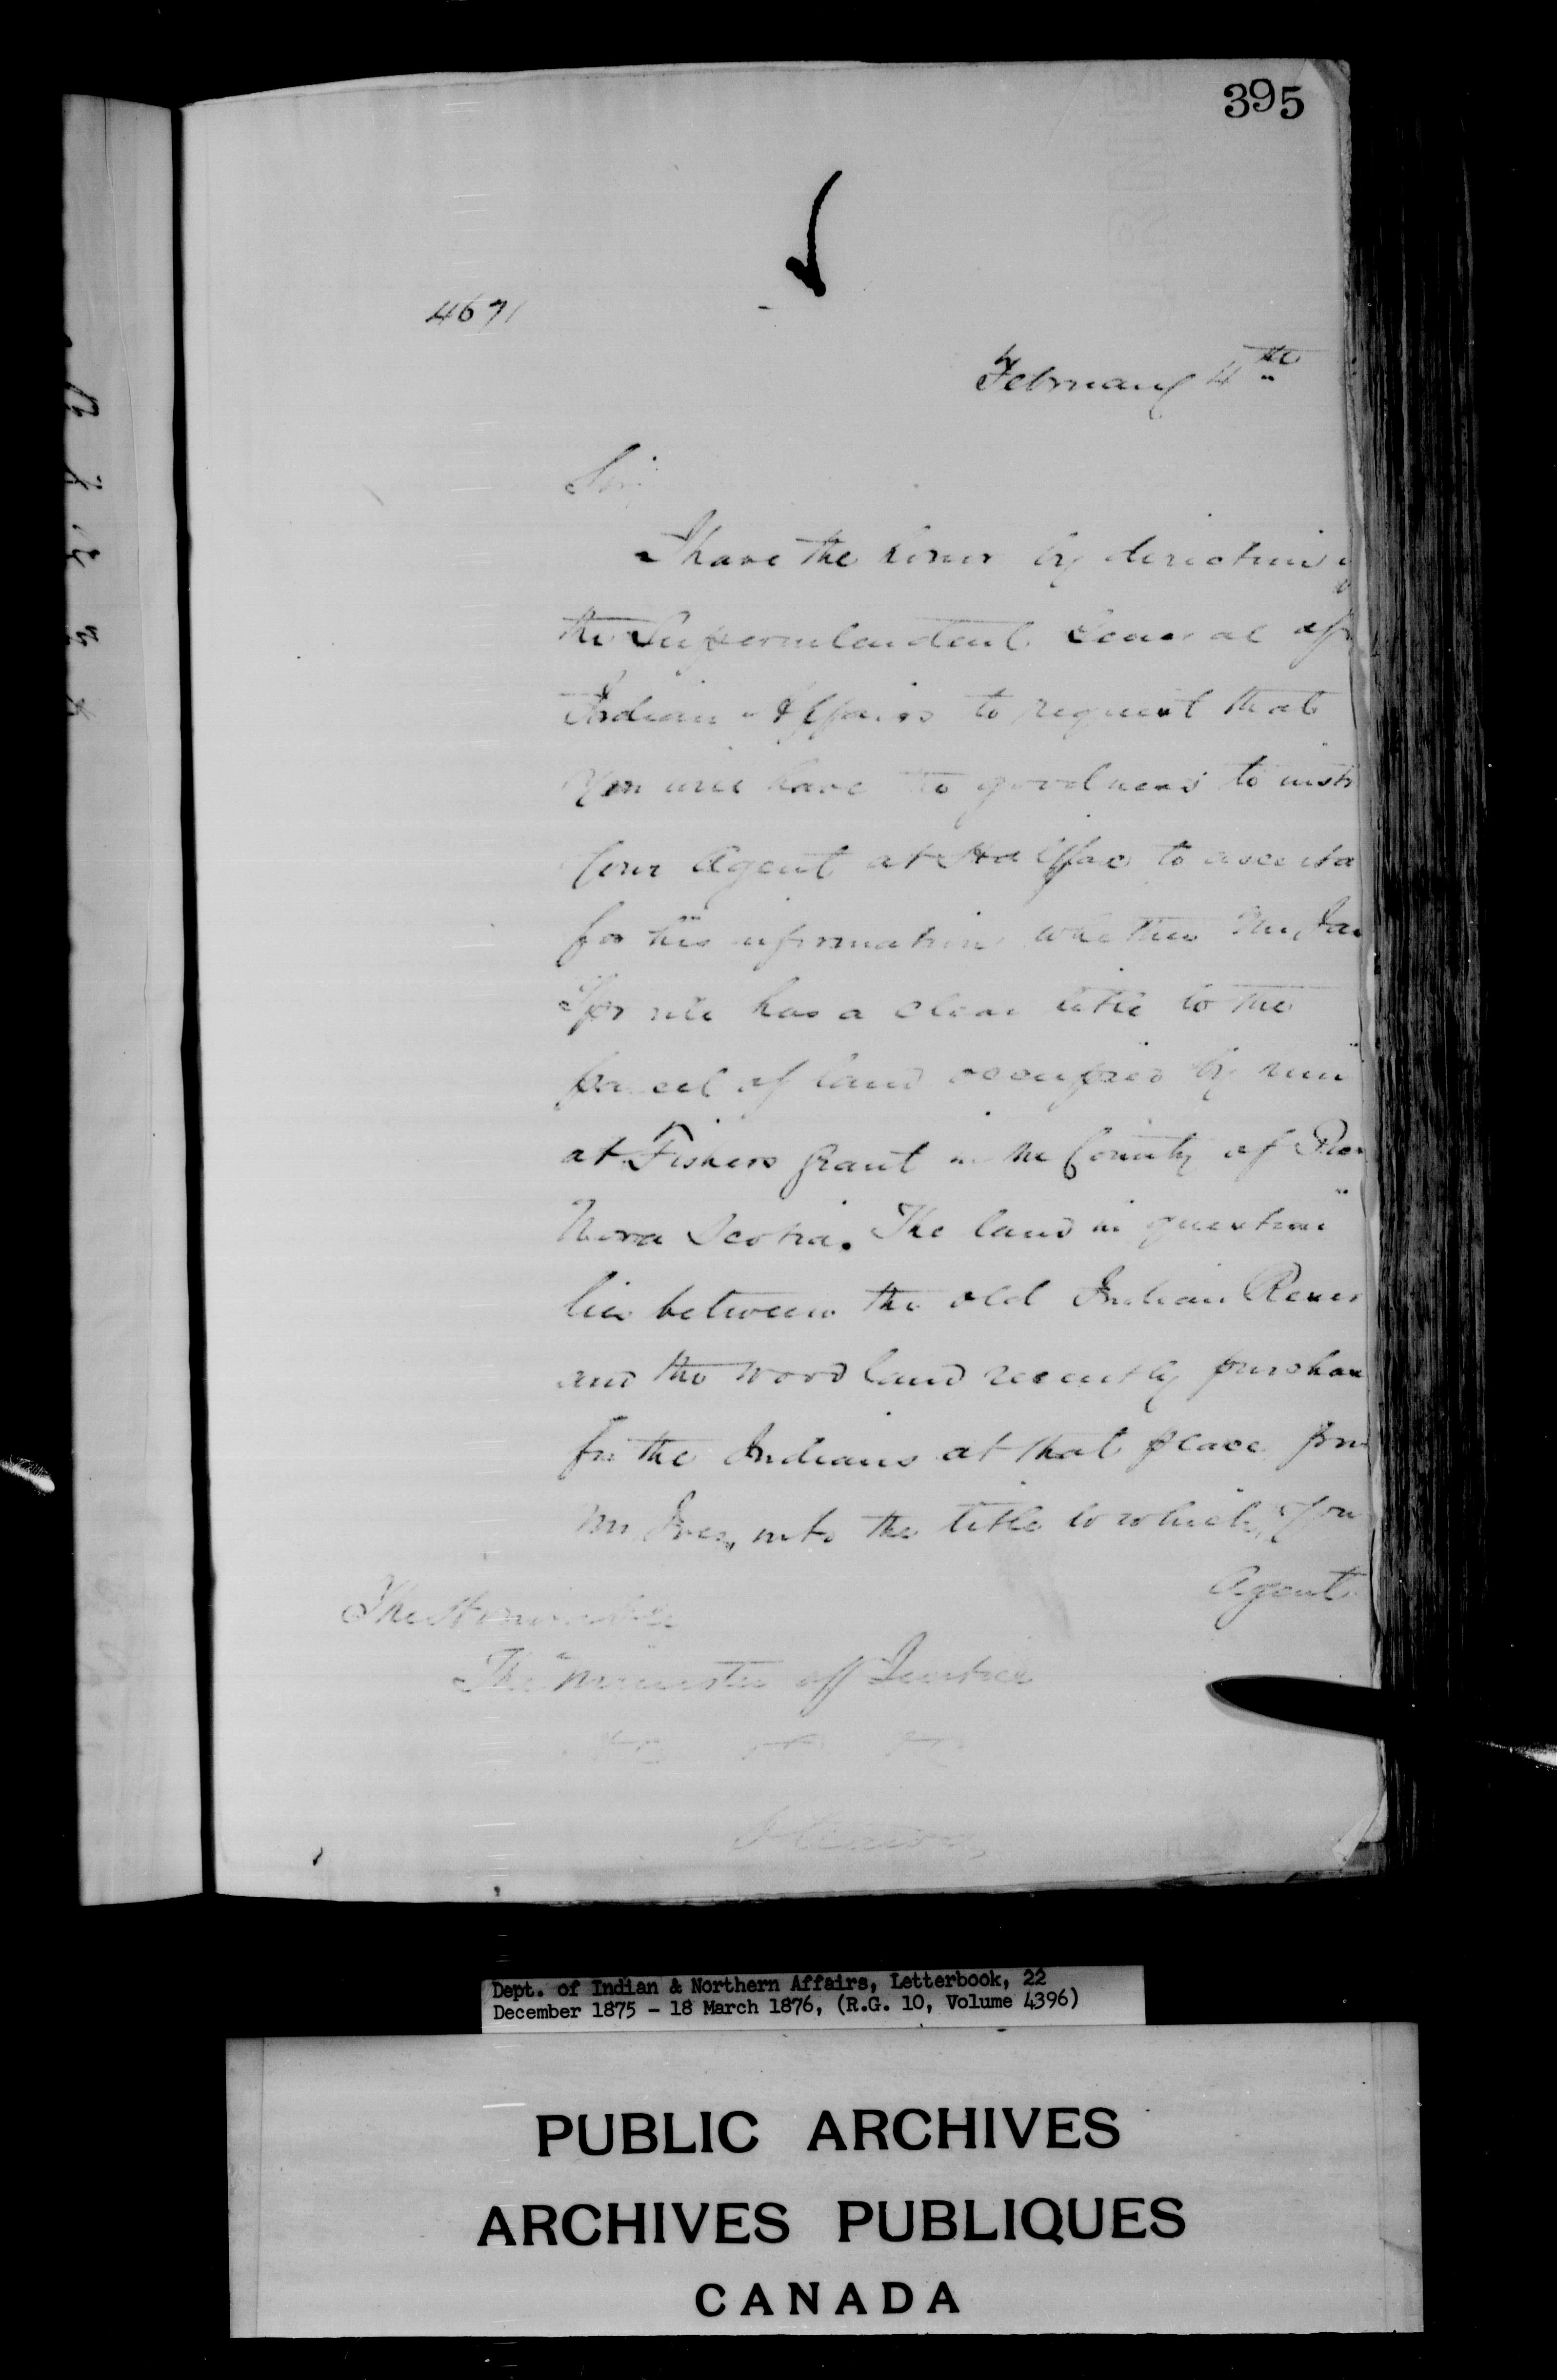 395
4671
February 4th
Sir
I have the honor by direction
the Superintendent General of
Indian Affairs to request that
you will have the goodness to inst
your Agent at Halifax to ascerta
for his information whether Mr
has a clear title to the
parcel of land occupied by him
at Fishers Grant in the County of
Nova Scotia. The land in question
lies between the old Indian Reser
and the wood land recently purchas
for the Indians at that place from
Mr Ives, into the title to which, you
Agent
The Honorable
The Minister of Justice
Ottawa
Dept. of Indian & Northern Affairs, Letterbook, 22
December 1875 - 18 March 1876, (R.G. 10, Volume 4396)
PUBLIC ARCHIVES
ARCHIVES PUBLIQUES
CANADA